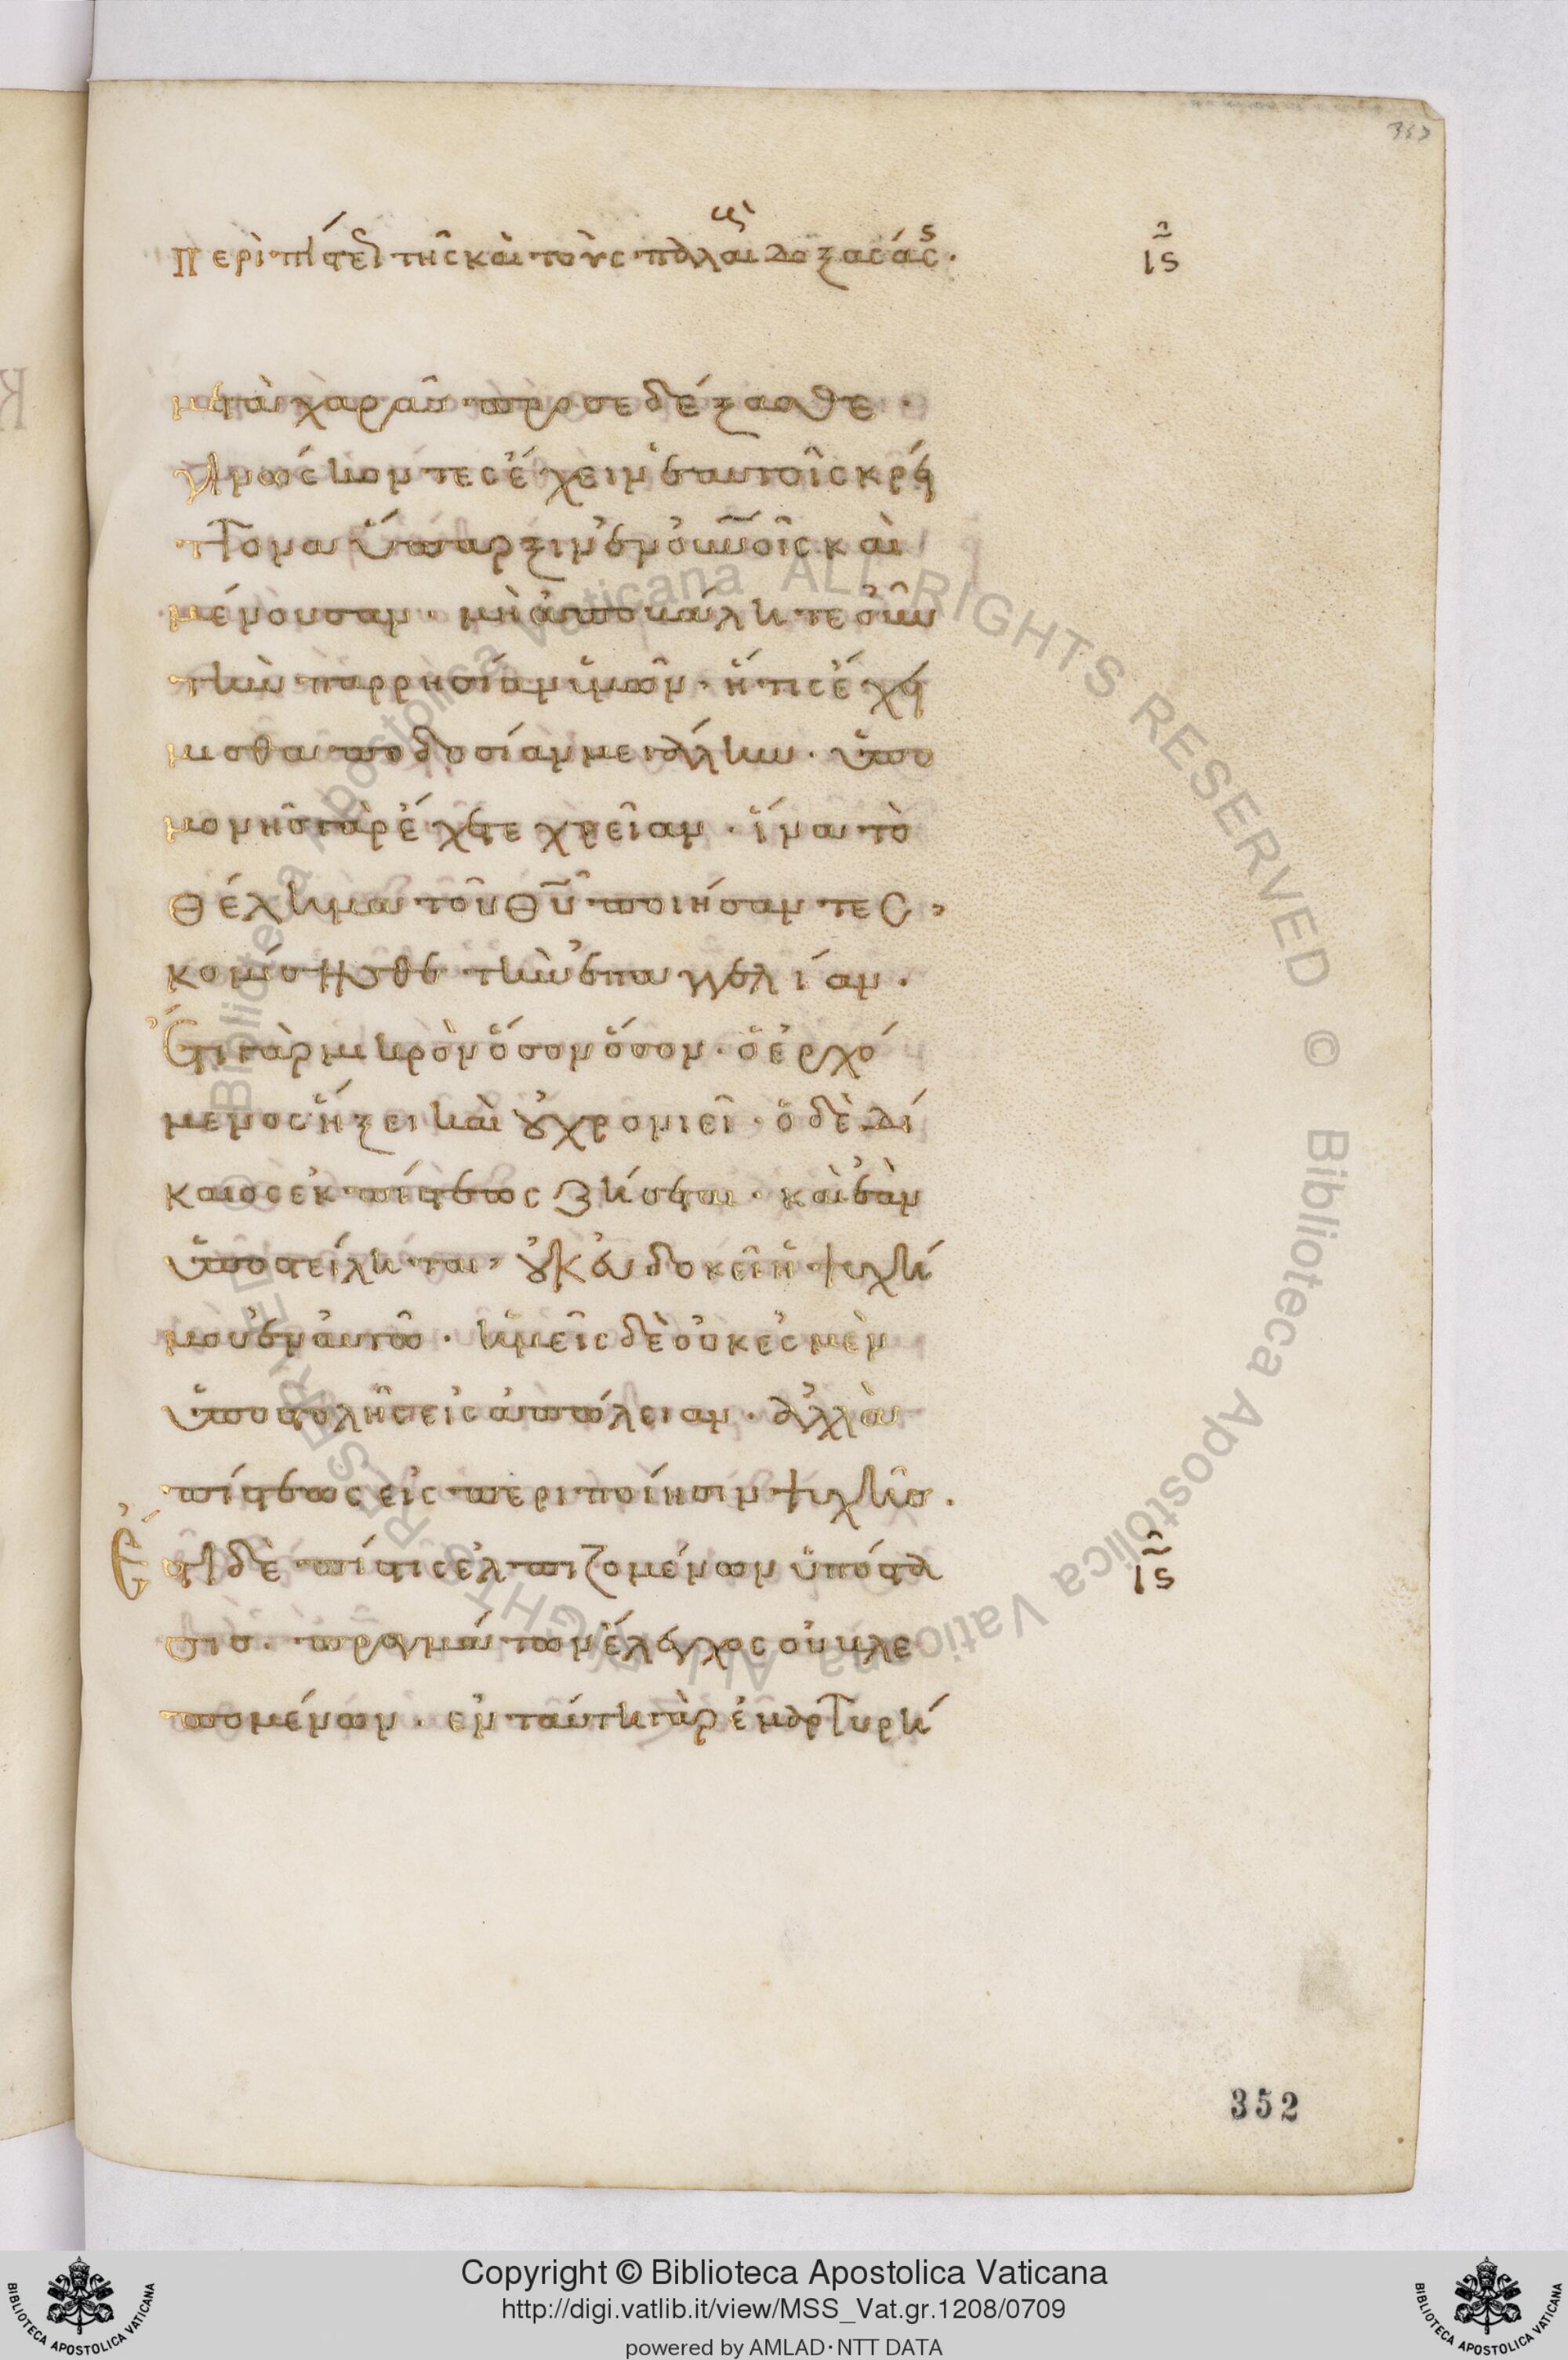 353
περὶ πίστεως τῆς καὶ τοὺς παλαι δοξασάσης· ιϛ
μετὰ χαρᾶς προσεδέξασθε·
γινώσκοντες ἔχειν ἐν ἑαυτοῖς κρεί
ττονα ὕπαρξιν ἐν οὐνοῖς καὶ
μένουσαν· μὴ ἀποβάλητε οὖν
τὴν παρρησίαν ὑμῶν· ἥτις ἔχει
μισθαποδοσίαν μεγάλην· ὑπο
μονῆς γὰρ ἔχετε χρείαν· ἵνα τὸ
θέλημα τοῦ θυ ποιήσαντες,
κομίσησθε τὴν ἐπαγγελίαν·
Ἔτι γὰρ μικρὸν ὅσον ὅσον· ὁ ἐρχό
μενος ἥξει καὶ οὐ χρονιεῖ· ὁ δὲ δί
καιος ἐκ πίστεως ζήσεται· καὶ ἐὰν
ὑποστείληται, οὐκ εὐδοκεῖ ἡ ψυχή
μου ἐν αὐτῷ· ἡμεῖς δὲ οὐκ ἐσμὲν
ὑποστολῆς εἰς ἀπώλειαν· ἀλλὰ
πίστεως εἰς περιποίησιν ψυχῆς·
Ἔστι δὲ πίστις ἐλπιζομένων ὑπόστα ιϛ
σις· πραγμάτων ἔλεγχος οὐ βλε
πομένων· ἐν ταύτῃ γὰρ ἐμαρτυρή
352
Biblioteca Apostolica Vaticana ALL RIGHTS RESERVED © Biblioteca Apostolica Vaticana ALL RIGHTS RESERVED ©
Copyright © Biblioteca Apostolica Vaticana
http://digi.vatlib.it/view/MSS_Vat.gr.1208/0709
powered by AMLAD·NTT DATA
BIBLIOTECA APOSTOLICA VATICANA
BIBLIOTECA APOSTOLICA VATICANA